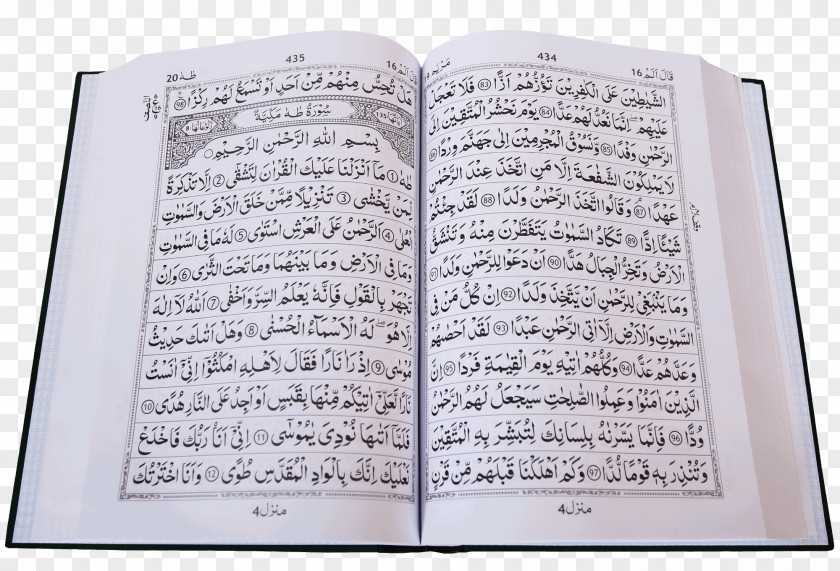 434
قَالَ اَلَمْ ١٦
مَرْيَم
الشَّيٰطِيْنَ عَلَى الْكٰفِرِيْنَ تَؤُزُّهُمْ اَزًّا ﴿٨٣﴾ فَلَا تَعْجَلْ
عَلَيْهِمْ ؕ اِنَّمَا نَعُدُّ لَهُمْ عَدًّا ﴿٨٤﴾ يَوْمَ نَحْشُرُ الْمُتَّقِيْنَ اِلَى
الرَّحْمٰنِ وَفْدًا ﴿٨٥﴾ وَّنَسُوْقُ الْمُجْرِمِيْنَ اِلٰى جَهَنَّمَ وِرْدًا ﴿٨٦﴾
لَا يَمْلِكُوْنَ الشَّفٰعَةَ اِلَّا مَنِ اتَّخَذَ عِنْدَ الرَّحْمٰنِ
عَهْدًا ﴿٨٧﴾ وَقَالُوا اتَّخَذَ الرَّحْمٰنُ وَلَدًا ﴿٨٨﴾ لَقَدْ جِئْتُمْ
شَيْئًا اِدًّا ﴿٨٩﴾ تَكَادُ السَّمٰوٰتُ يَتَفَطَّرْنَ مِنْهُ وَتَنْشَقُّ
الْاَرْضُ وَتَخِرُّ الْجِبَالُ هَدًّا ﴿٩٠﴾ اَنْ دَعَوْا لِلرَّحْمٰنِ وَلَدًا ﴿٩١﴾
وَمَا يَنْۢبَغِيْ لِلرَّحْمٰنِ اَنْ يَّتَّخِذَ وَلَدًا ﴿٩٢﴾ اِنْ كُلُّ مَنْ فِى
السَّمٰوٰتِ وَالْاَرْضِ اِلَّاۤ اٰتِى الرَّحْمٰنِ عَبْدًا ﴿٩٣﴾ لَقَدْ اَحْصٰىهُمْ
وَعَدَّهُمْ عَدًّا ﴿٩٤﴾ وَكُلُّهُمْ اٰتِيْهِ يَوْمَ الْقِيٰمَةِ فَرْدًا ﴿٩٥﴾ اِنَّ
الَّذِيْنَ اٰمَنُوْا وَعَمِلُوا الصّٰلِحٰتِ سَيَجْعَلُ لَهُمُ الرَّحْمٰنُ
وُدًّا ﴿٩٦﴾ فَاِنَّمَا يَسَّرْنٰهُ بِلِسَانِكَ لِتُبَشِّرَ بِهِ الْمُتَّقِيْنَ
وَتُنْذِرَ بِهٖ قَوْمًا لُّدًّا ﴿٩٧﴾ وَكَمْ اَهْلَكْنَا قَبْلَهُمْ مِّنْ قَرْنٍ ؕ
منزل ٤
435
16
طٰهٰ 20
هَلْ تُحِسُّ مِنْهُمْ مِّنْ اَحَدٍ اَوْ تَسْمَعُ لَهُمْ رِكْزًا ﴿٩٨﴾
سُوْرَةُ طٰهٰ مَكِّيَّةٌ
بِسْمِ اللّٰهِ الرَّحْمٰنِ الرَّحِيْمِ
طٰهٰ ﴿١﴾ مَاۤ اَنْزَلْنَا عَلَيْكَ الْقُرْاٰنَ لِتَشْقٰۤى ﴿٢﴾ اِلَّا تَذْكِرَةً
لِّمَنْ يَّخْشٰى ﴿٣﴾ تَنْزِيْلًا مِّمَّنْ خَلَقَ الْاَرْضَ وَالسَّمٰوٰتِ
الْعُلٰى ﴿٤﴾ اَلرَّحْمٰنُ عَلَى الْعَرْشِ اسْتَوٰى ﴿٥﴾ لَهٗ مَا فِى السَّمٰوٰتِ
وَمَا فِى الْاَرْضِ وَمَا بَيْنَهُمَا وَمَا تَحْتَ الثَّرٰى ﴿٦﴾ وَاِنْ
تَجْهَرْ بِالْقَوْلِ فَاِنَّهٗ يَعْلَمُ السِّرَّ وَاَخْفٰى ﴿٧﴾ اَللّٰهُ لَاۤ اِلٰهَ
اِلَّا هُوَ ؕ لَهُ الْاَسْمَآءُ الْحُسْنٰى ﴿٨﴾ وَهَلْ اَتٰىكَ حَدِيْثُ
مُوْسٰى ﴿٩﴾ اِذْ رَاٰ نَارًا فَقَالَ لِاَهْلِهِ امْكُثُوْۤا اِنِّيْۤ اٰنَسْتُ
نَارًا لَّعَلِّيْۤ اٰتِيْكُمْ مِّنْهَا بِقَبَسٍ اَوْ اَجِدُ عَلَى النَّارِ هُدًى ﴿١٠﴾
فَلَمَّاۤ اَتٰىهَا نُوْدِيَ يٰمُوْسٰى ﴿١١﴾ اِنِّيْۤ اَنَا رَبُّكَ فَاخْلَعْ
نَعْلَيْكَ ۚ اِنَّكَ بِالْوَادِ الْمُقَدَّسِ طُوًى ﴿١٢﴾ وَاَنَا اخْتَرْتُكَ
منزل ٤